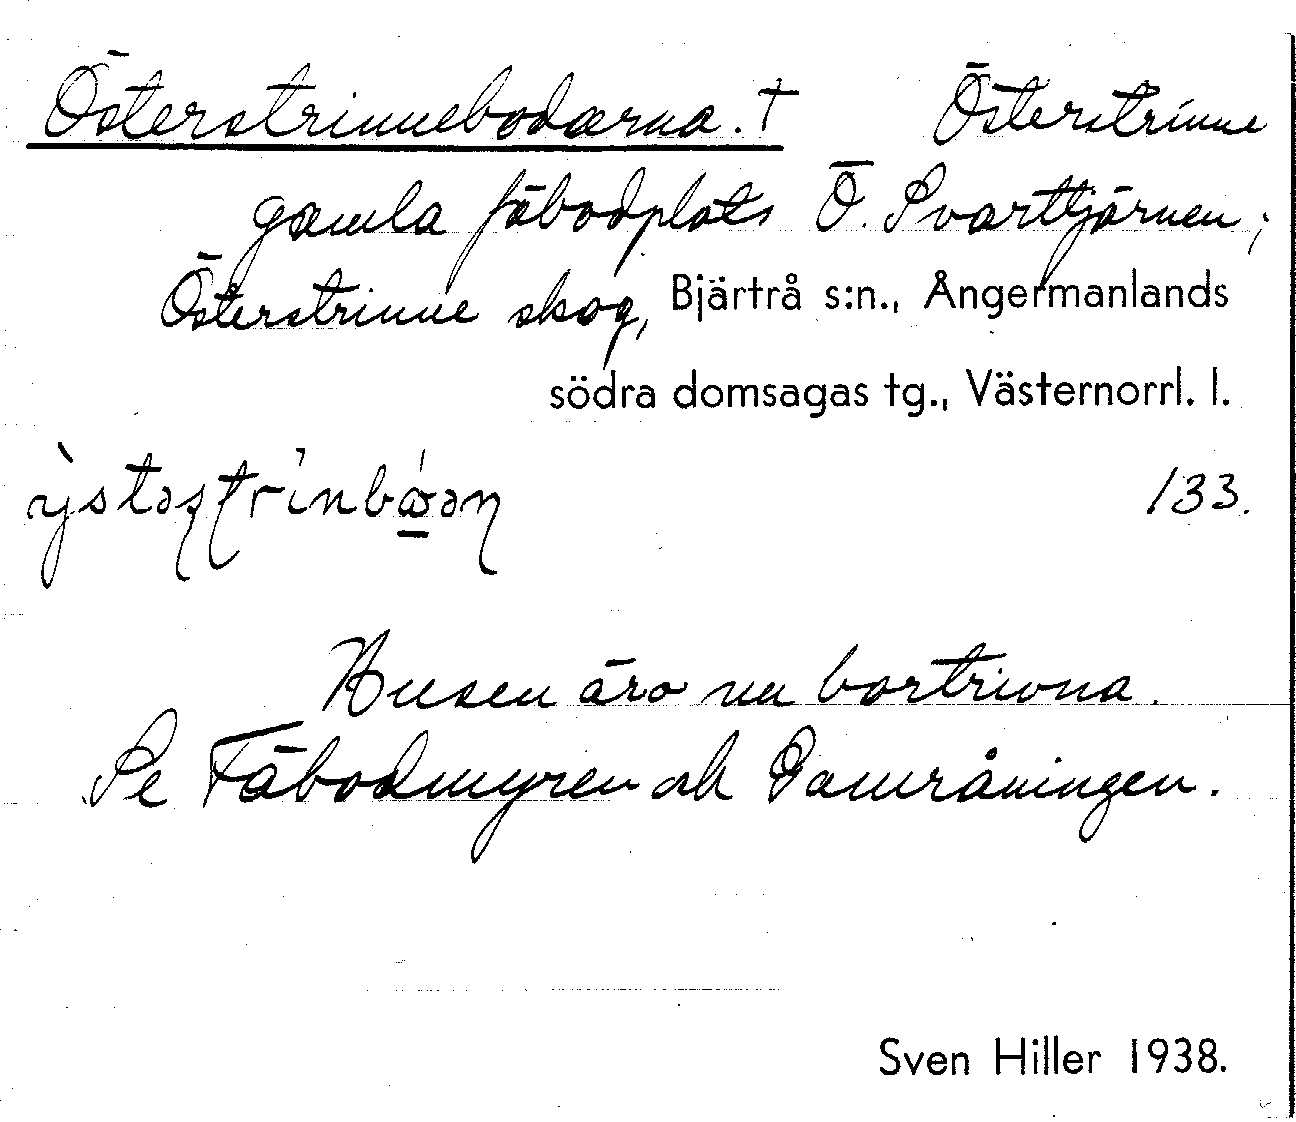 Österstrinnebodarna. † Österstrinne
gamla fäbodplats Ö. Svarttjärnen;
Österstrinne skog, Bjärtrå s:n., Ångermanlands
södra domsagas tg., Västernorrl. l.
133.
Husen äro nu bortrivna.
Se Fäbodmyren och Gamråningen.
Sven Hiller 1938.